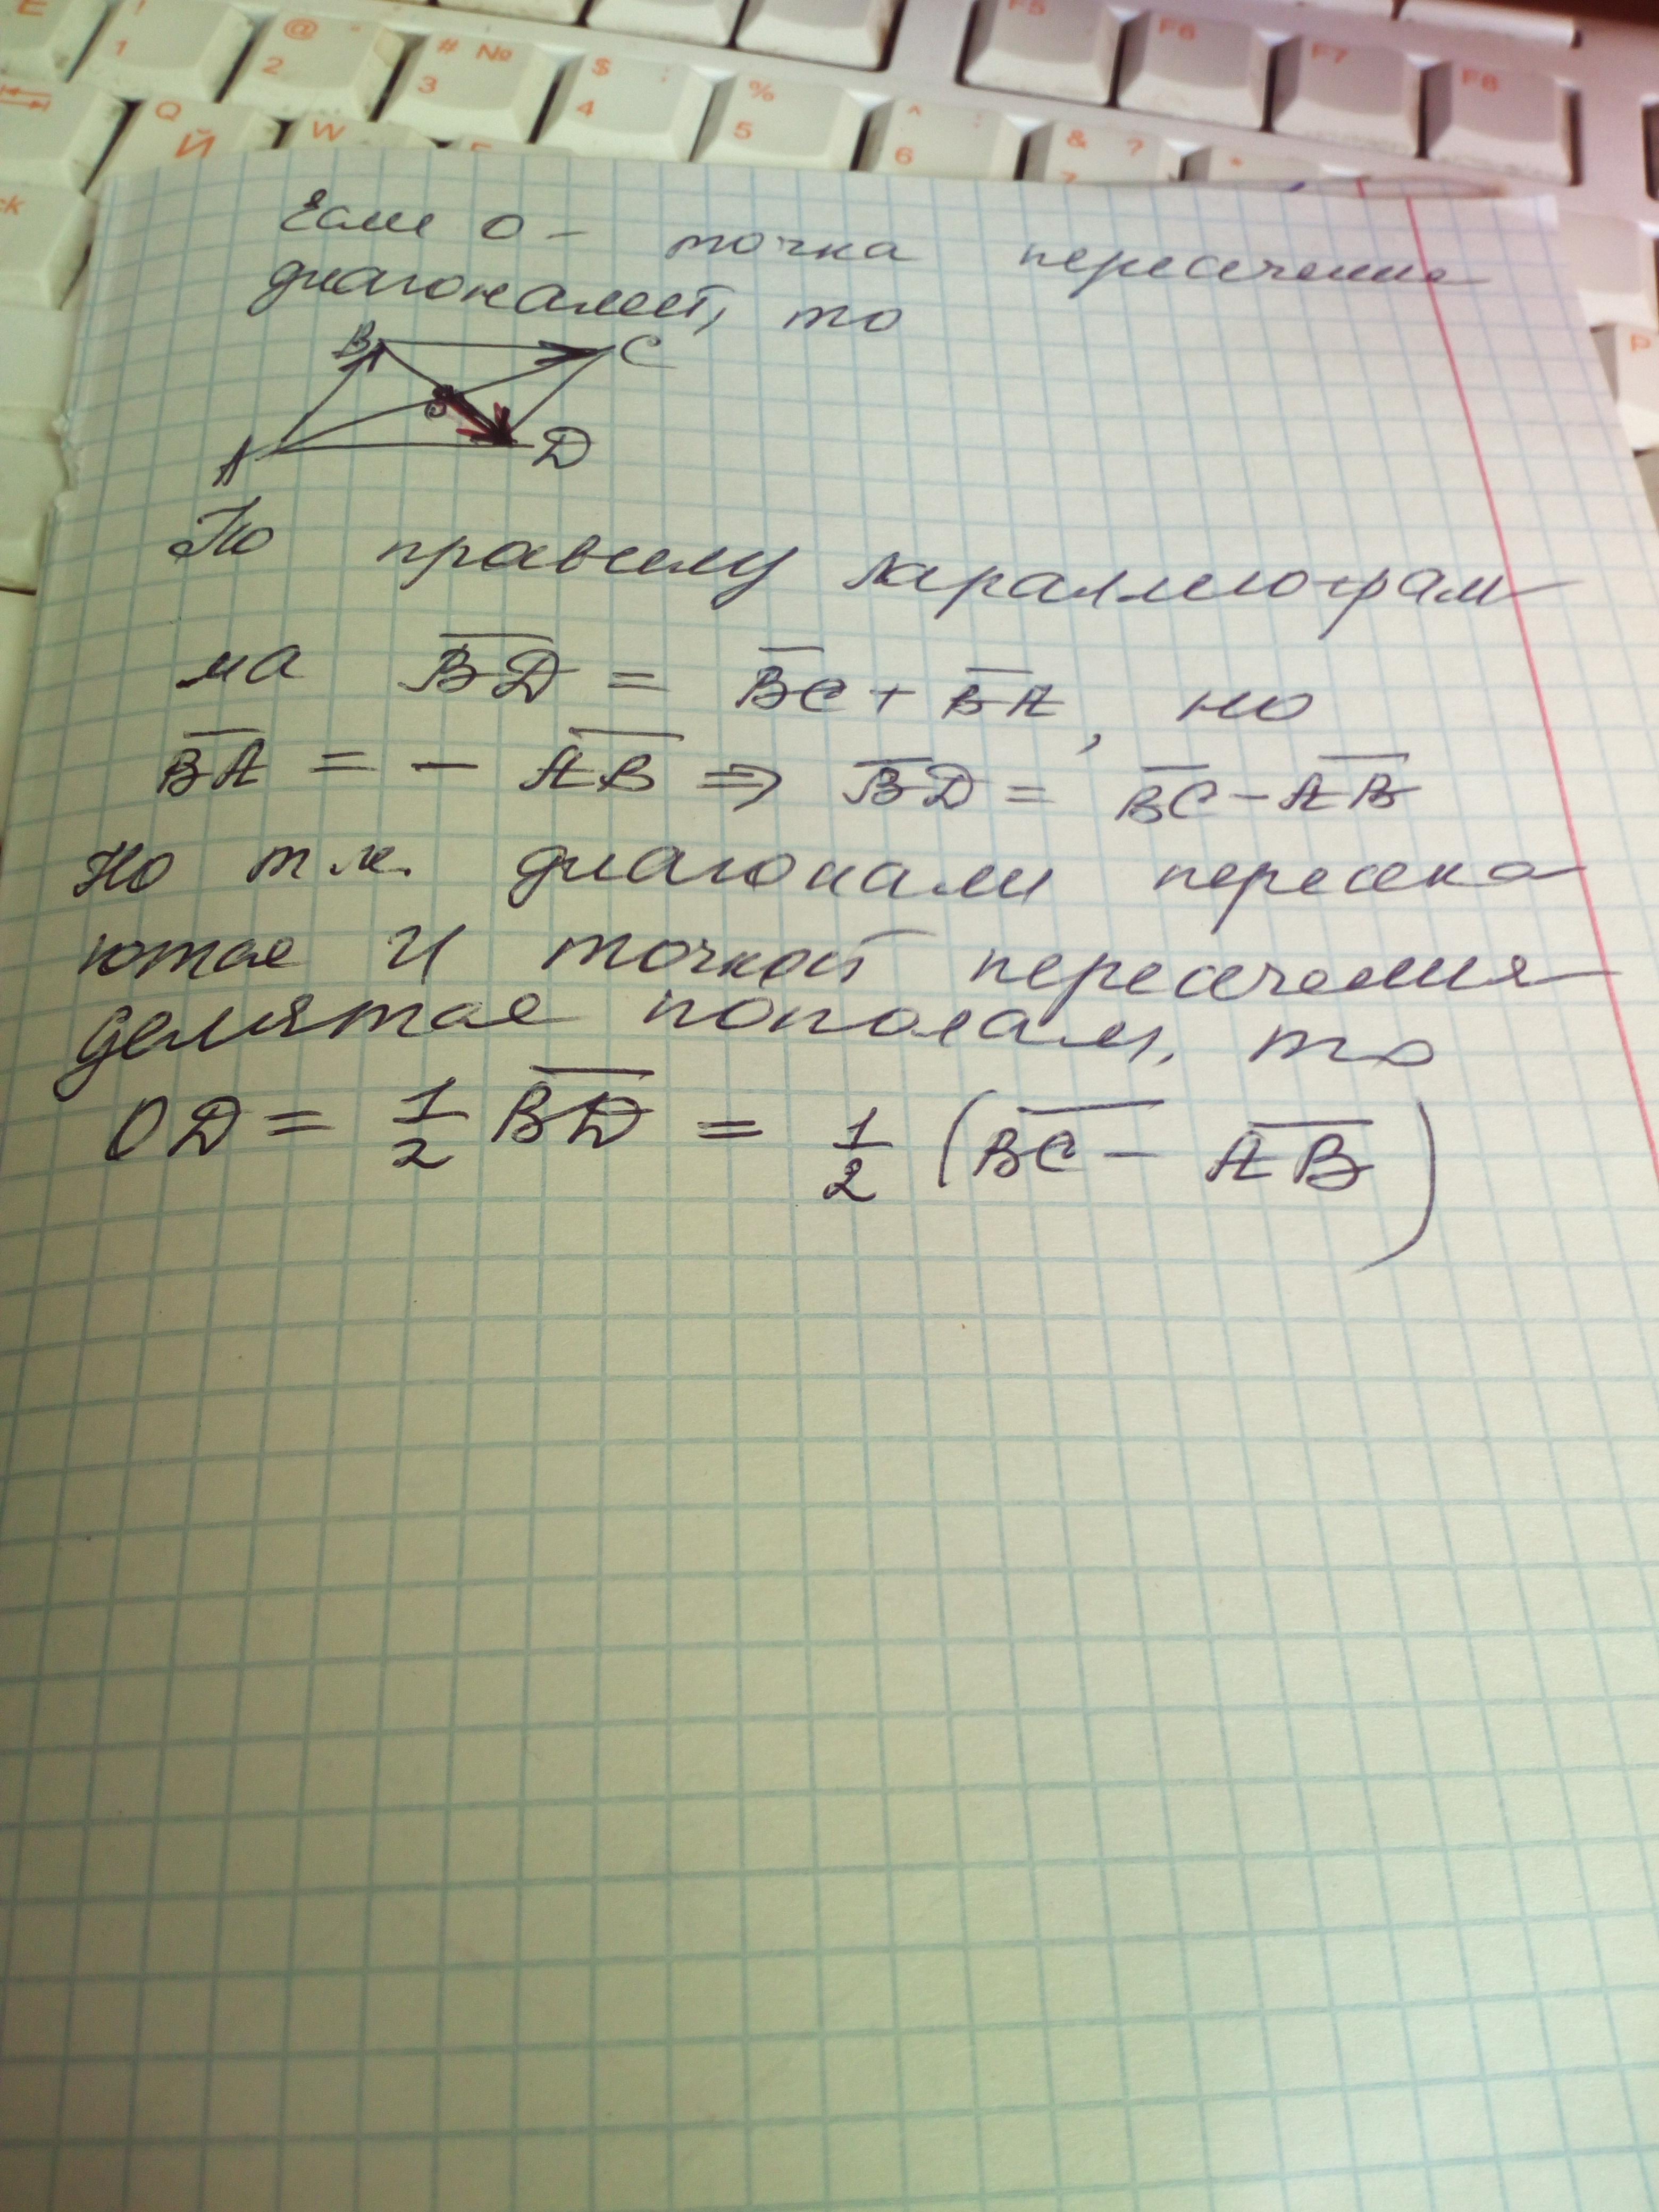 ! 1
@ " 2
# № 3
$ ; 4
% 5
^ : 6
& ? 7
*
F5 F6 F7 F8
Q Й W
ck
Р
Если О – точка пересечения
диагоналей, то
B C
O
A D
По правилу параллелограм
ма B̅D̅ = B̅C̅ + B̅A̅, но
B̅A̅ = – A̅B̅ ⇒ B̅D̅ = B̅C̅ – A̅B̅
Но т.к. диагонали пересека
ются и точкой пересечения
делятся пополам, то
OD = 1/2 B̅D̅ = 1/2 (B̅C̅ – A̅B̅)